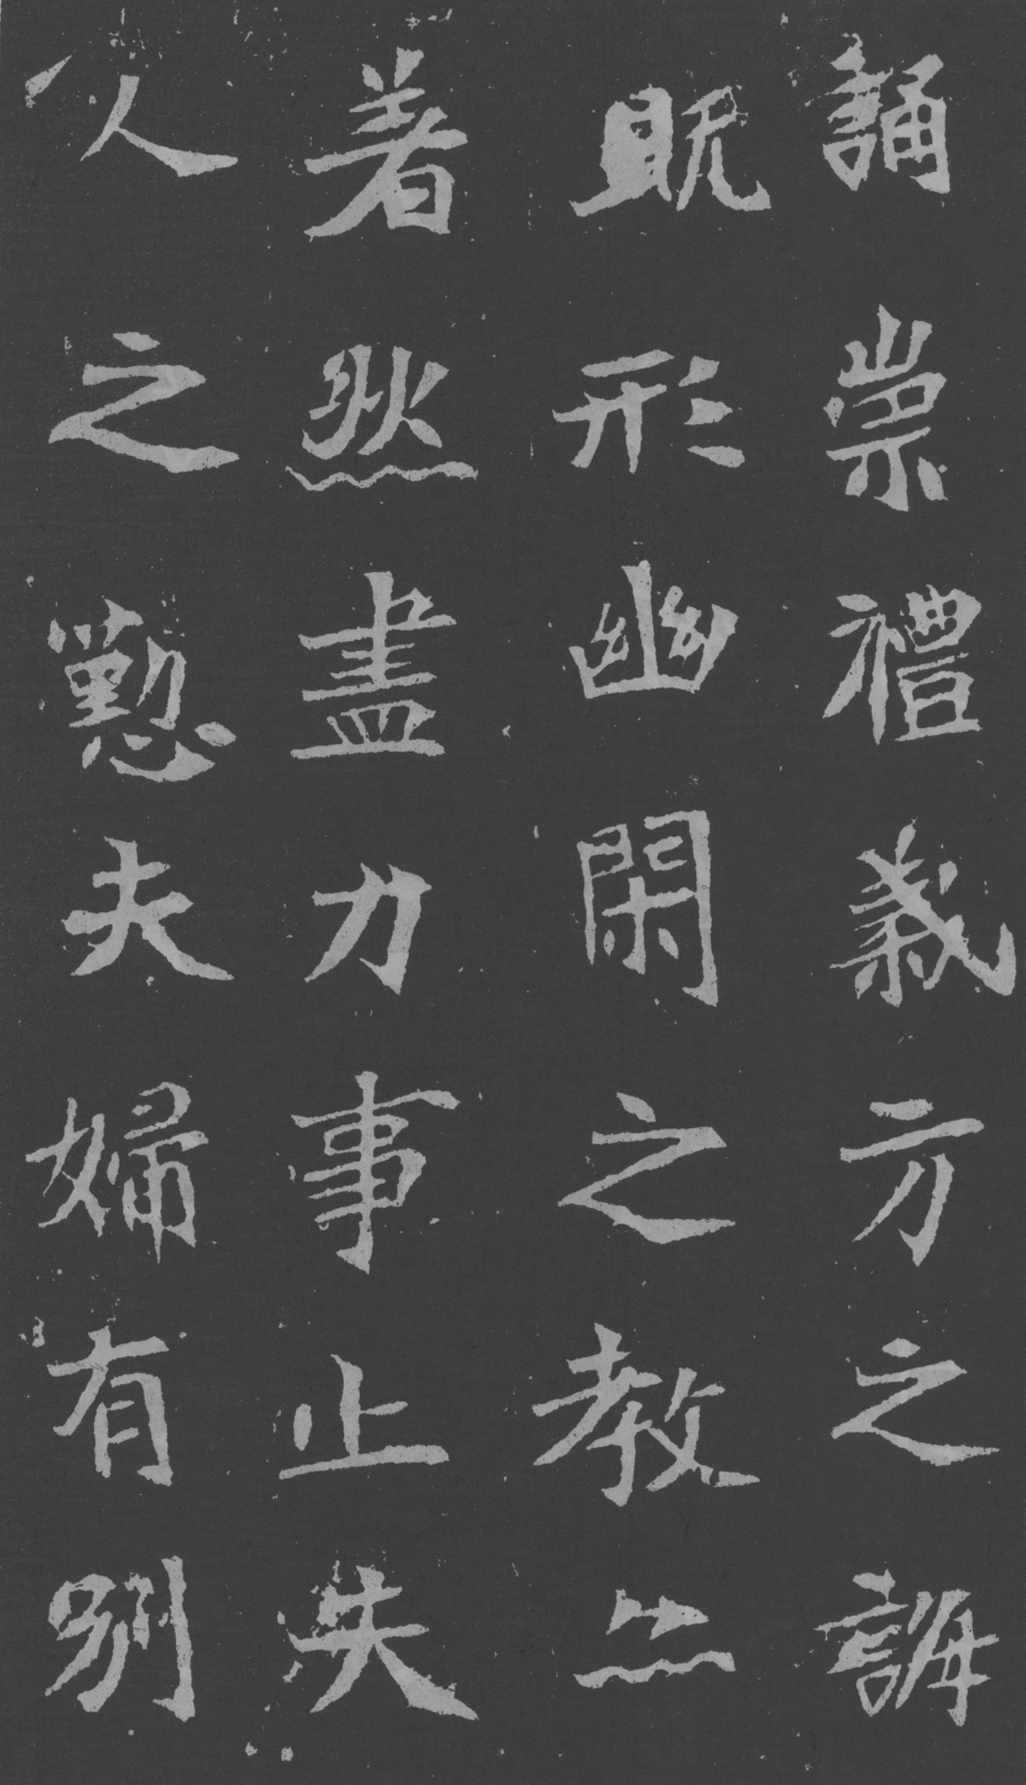 誦崇禮義方之訓
既形幽閑之教亦
著然盡力事止失
人之懃夫婦有別